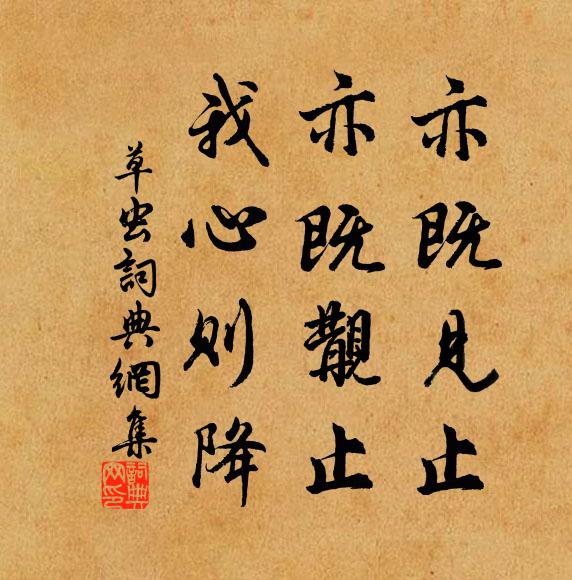 亦既見止
亦既覯止
我心則降
草虫詞典網集
詞典網印